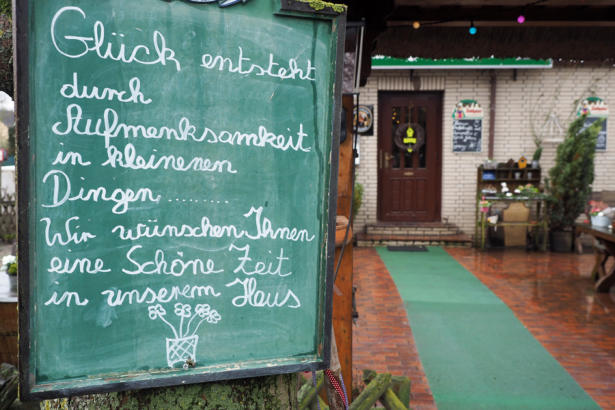 Glück entsteht
durch
Aufmerksamkeit
in kleineren
Dingen..........
Wir wünschen Ihnen
eine Schöne Zeit
in unserem Haus